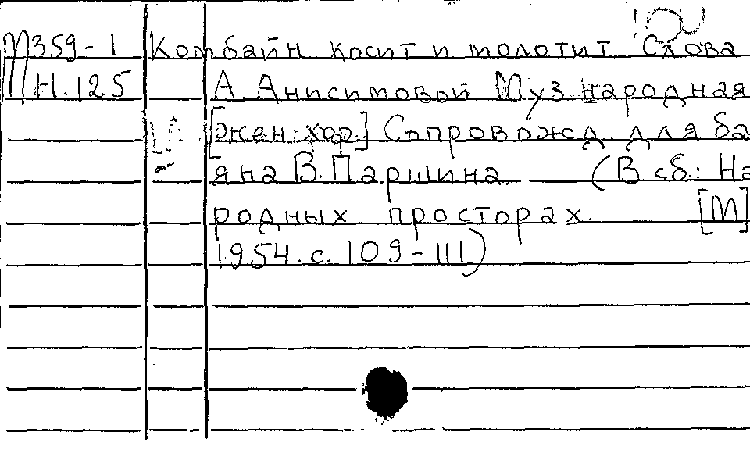 М359-1 Комбайн косит и молотит Слова
Н.125 А Анисимовой Муз.народная
[жен.хор.] Сопровожд. для ба
яна В.Паршина (В сб.: На
родных просторах. [М]
1954.с.109-111)